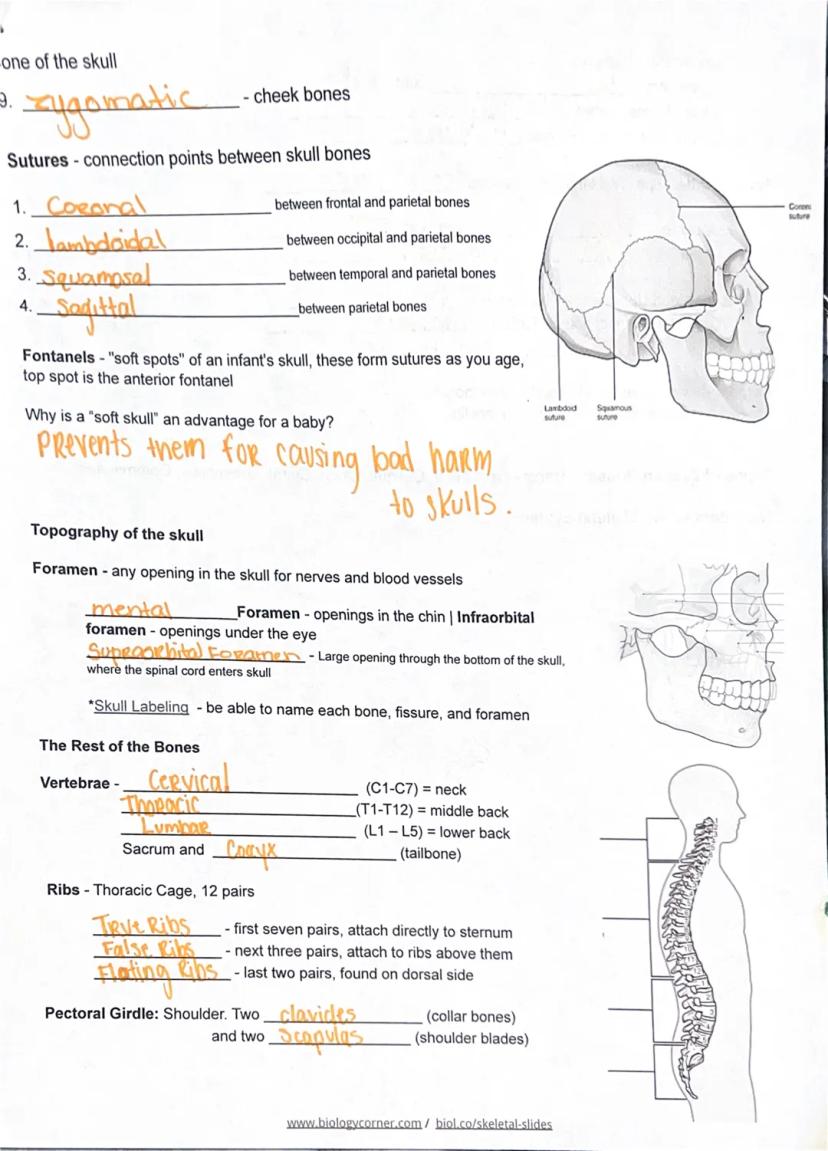 one of the skull
9. zygomatic - cheek bones
Sutures - connection points between skull bones
1. Coronal between frontal and parietal bones
2. lambdoidal between occipital and parietal bones
3. squamosal between temporal and parietal bones
4. Sagittal between parietal bones
Corona
suture
Fontanels - "soft spots" of an infant's skull, these form sutures as you age,
top spot is the anterior fontanel
Lambdoid
suture
Squamous
suture
Why is a "soft skull" an advantage for a baby?
Prevents them for causing bad harm
to skulls.
Topography of the skull
Foramen - any opening in the skull for nerves and blood vessels
mental Foramen - openings in the chin | Infraorbital
foramen - openings under the eye
Supraorbital Foramen - Large opening through the bottom of the skull,
where the spinal cord enters skull
*Skull Labeling - be able to name each bone, fissure, and foramen
The Rest of the Bones
Vertebrae - Cervical (C1-C7) = neck
Thoracic (T1-T12) = middle back
Lumbar (L1 – L5) = lower back
Sacrum and (tailbone)
Ribs - Thoracic Cage, 12 pairs
True Ribs - first seven pairs, attach directly to sternum
False Ribs - next three pairs, attach to ribs above them
Floting Ribs - last two pairs, found on dorsal side
Pectoral Girdle: Shoulder. Two clavicles (collar bones)
and two Scapulas (shoulder blades)
www.biologycorner.com / biol.co/skeletal-slides